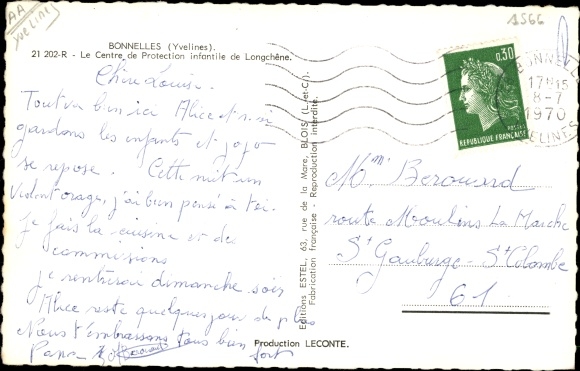 AA
Yvelines
1566
BONNELLES (Yvelines).
21 202-R - Le Centre de Protection infantile de Longchêne.
Chère Louise.
Tout va bien ici Alice et moi
gardons les enfants et jojo
se repose. Cette nuit un
violent orage, j'ai bien pensé à toi.
Je fais la cuisine et des
commissions
je rentrerai dimanche soir
Alice reste quelques jours de plus
Nous t'embrassons tous bien fort
Papa
Editions ESTEL, 63, rue de la Mare, BLOIS (L.-et-C.).
Fabrication française - Reproduction interdite.
Production LECONTE.
0,30
POSTES
REPUBLIQUE FRANÇAISE
BONNELLES
17H15
8-7
1970
YVELINES
Mme Berouard
route Moulins La Marche
St Gauburge - St Colombe
61